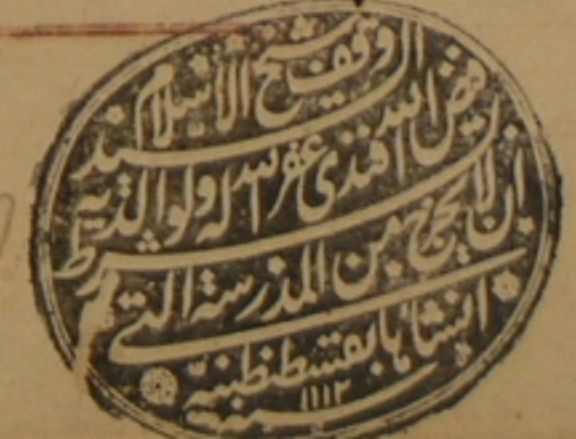 وقف شيخ الاسلام السيد
فيض الله افندى غفر الله له ولوالديه بشرط
ان لا يخرج من المدرسة التي
انشاها بقسطنطينية
سنة ١١١٢